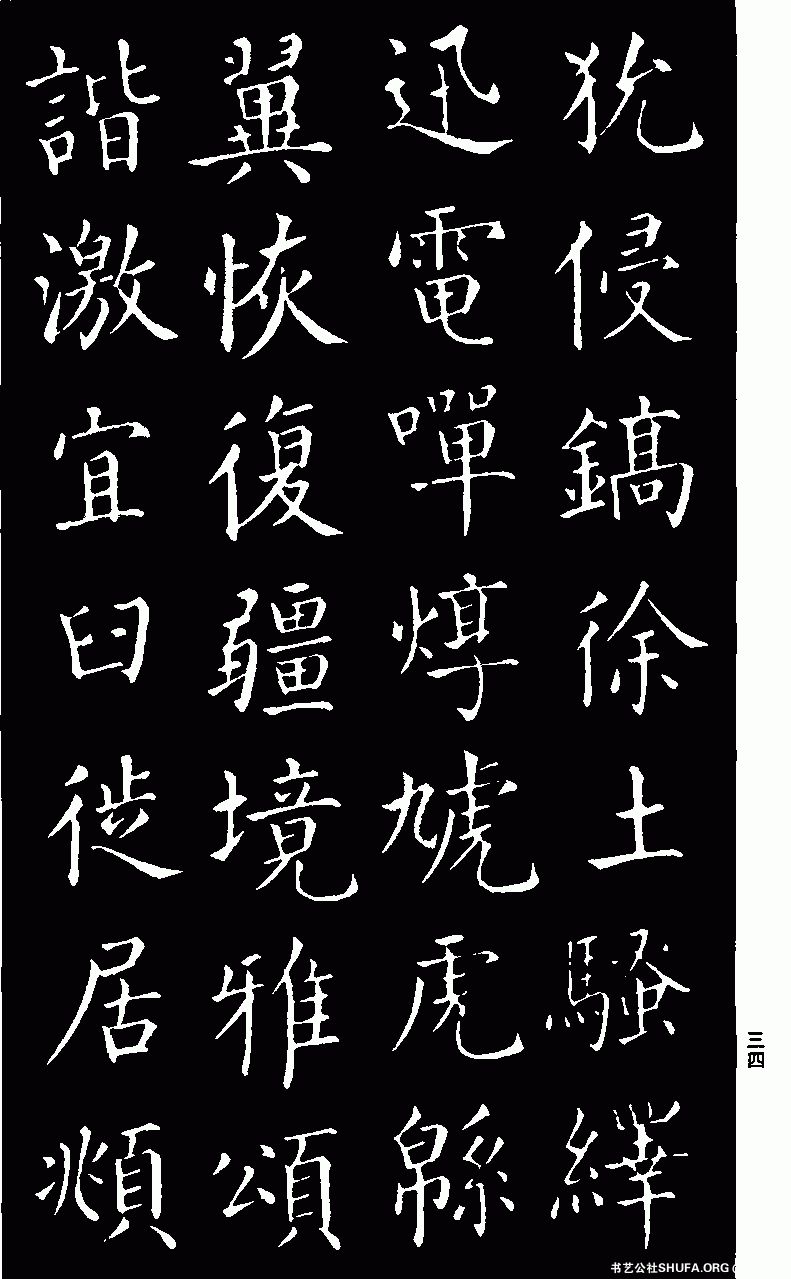 狁侵鎬徐土騷繹
迅電嘽焞虓虎緜
翼恢復疆境雅頌
諧激宜臼徙居頫
三四
书艺公社SHUFA.ORG